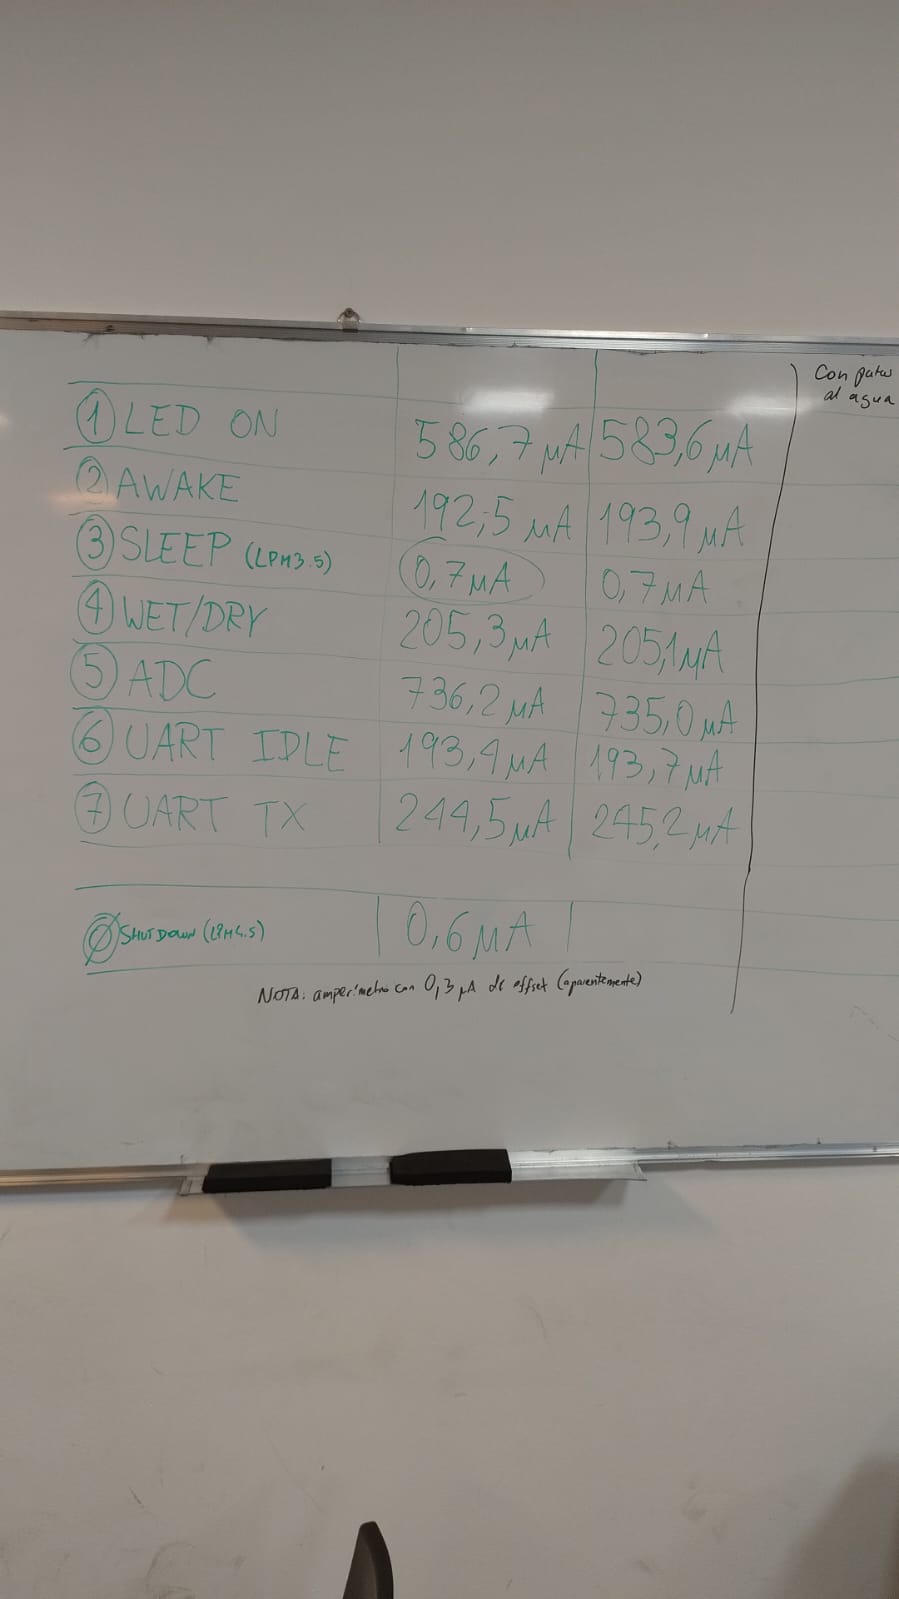 ① LED ON 586,7 μA 583,6 μA
② AWAKE 192,5 μA 193,9 μA
③ SLEEP (LPM3.5) 0,7 μA 0,7 μA
④ WET/DRY 205,3 μA 205,1 μA
⑤ ADC 736,2 μA 735,0 μA
⑥ UART IDLE 193,4 μA 193,7 μA
⑦ UART TX 244,5 μA 245,2 μA
Ø SHUTDOWN (LPM4.5) 0,6 μA
NOTA: amperímetro con 0,3 μA de offset (aparentemente)
Con patas
al agua